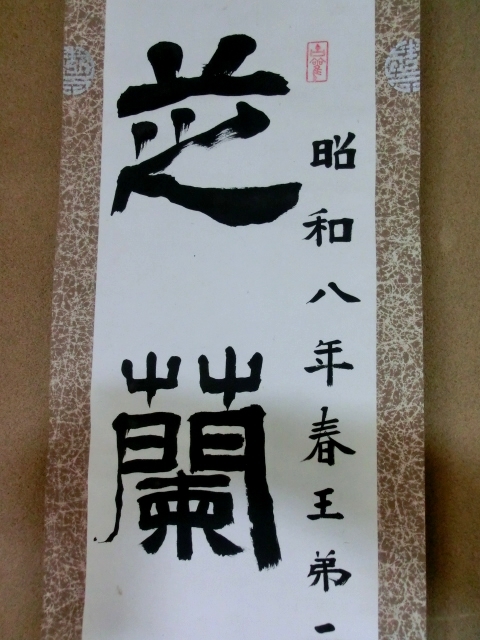 昭和八年春王弟一
芝蘭